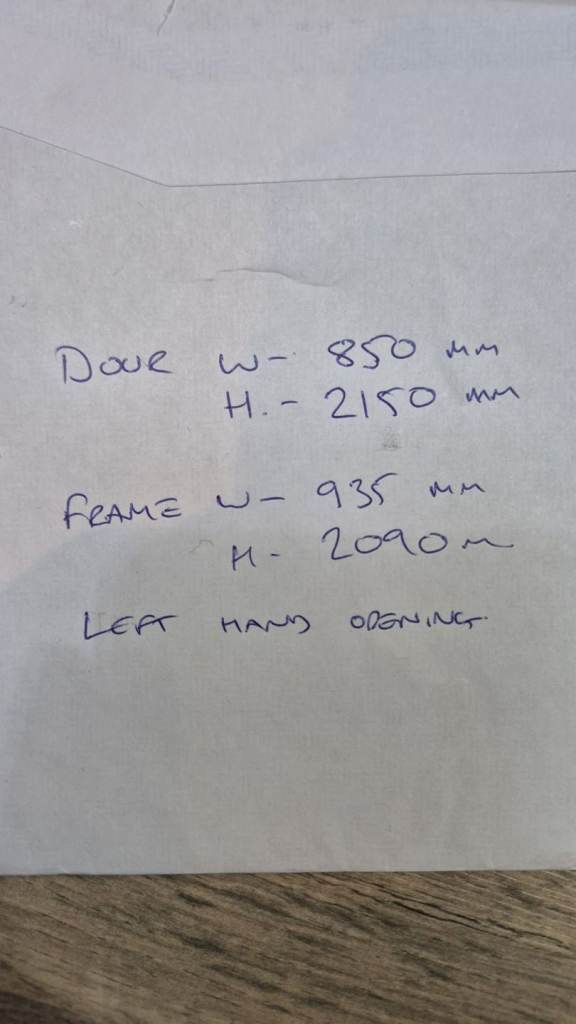 DOUR W- 850 mm
H.- 2150 mm
FRAME W- 935 mm
H- 2090 m
LEFT HAND OPENING.